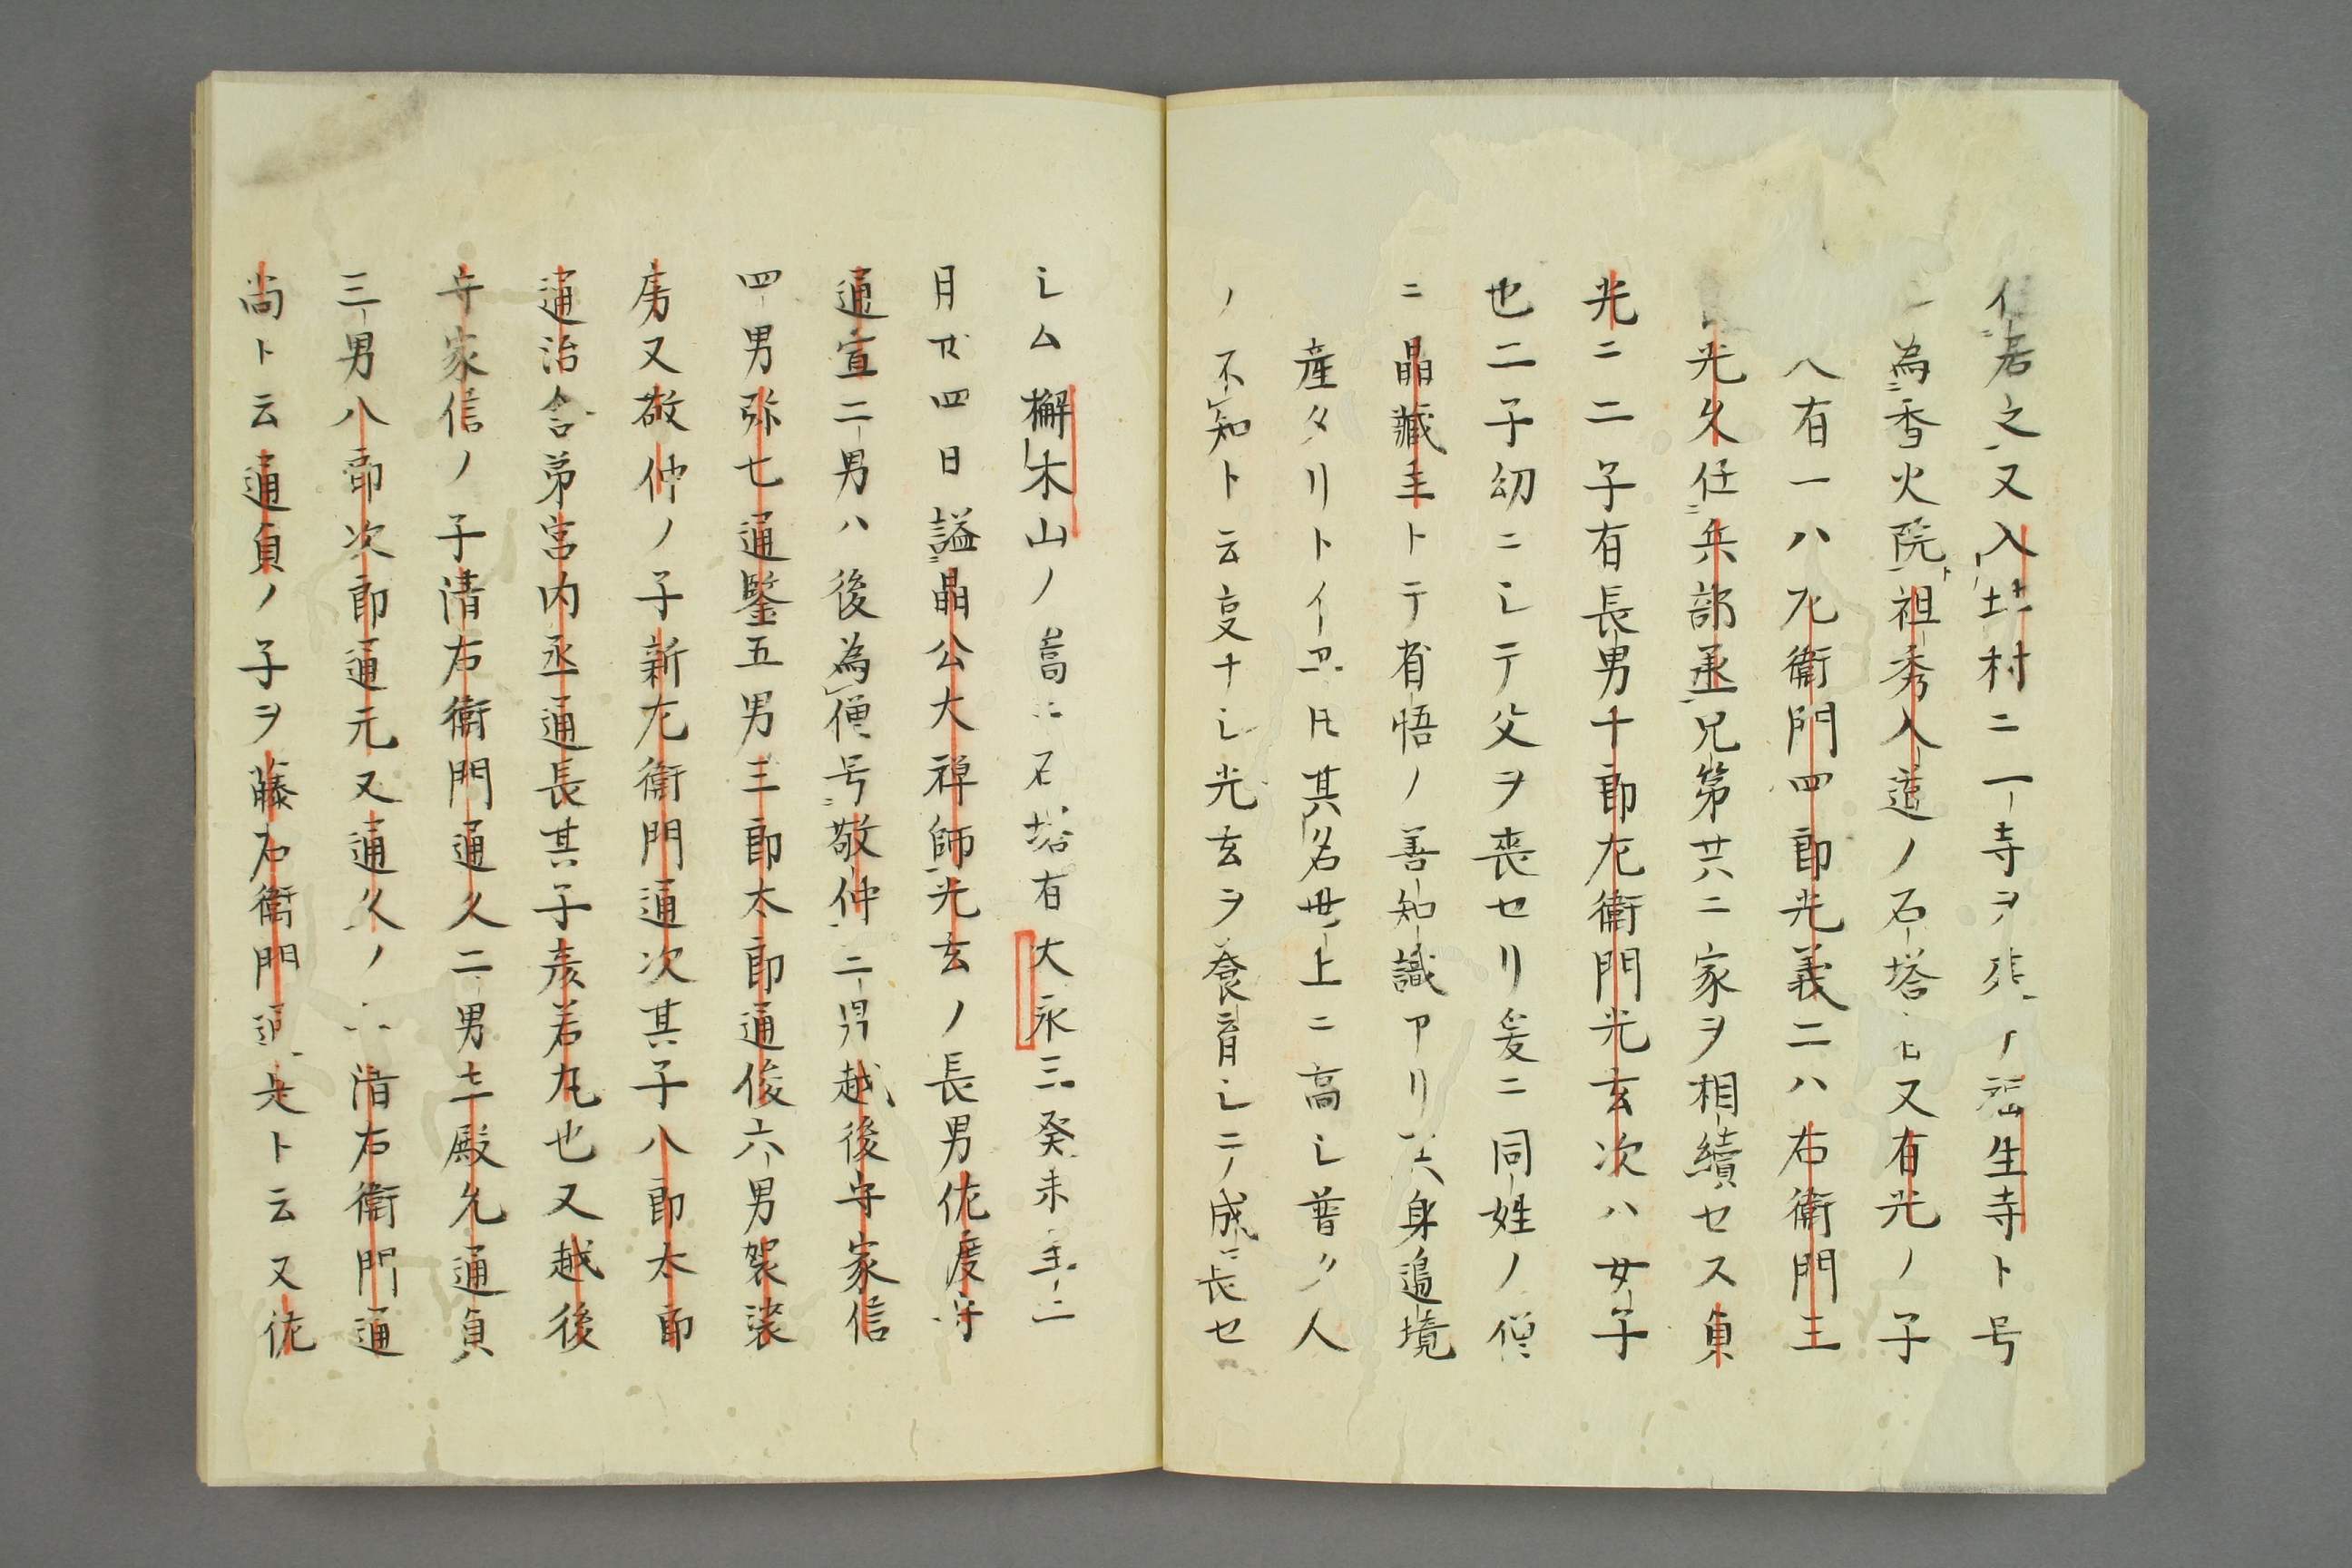 居之又入地村ニ一寺ヲ 生寺ト号
為香火院祖秀入道ノ石塔 又有光ノ子
八有一ハ左衛門四郎光義二ハ右衛門三
光久任兵部丞兄第共ニ家ヲ相續セス貞
光ニ二子有長男十郎左衛門光玄次ハ女子
也二子幼ニシテ父ヲ喪セリ爰ニ同姓ノ僧
ニ晶藏主トテ省悟ノ善知識アリ 身邉境
産タリトイヱ𪜈其名世上ニ高シ普ク人
ノ不知ト云叓ナシ光玄ヲ養育シテ成長セ
シム 木山ノ嵩ニ石塔有大永三癸未年二
月廿四日謚晶公大禅師光玄ノ長男佐度守
通宣二男ハ後為僧号敬仲二男越後守家信
四男弥七通鑒五男三郎太郎通俊六男袈裟
房又敬仲ノ子新左衛門通次其子八郎太郎
通治舎弟宮内丞通長其子彦若丸也又越後
守家信ノ子清右衛門通久二男主殿允通貞
三男八郎次郎通元又通久ノ 清右衛門通
尚ト云通貞ノ子ヲ藤右衛門 是ト云又佐